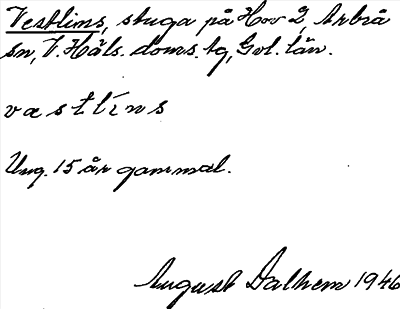 Vestlins, stuga på Hov 2, Arbrå
sn, V. Häls. doms. tg, Gvl. län.
vastlíns
Ung. 15 år gammal.
August Dalhem 1946